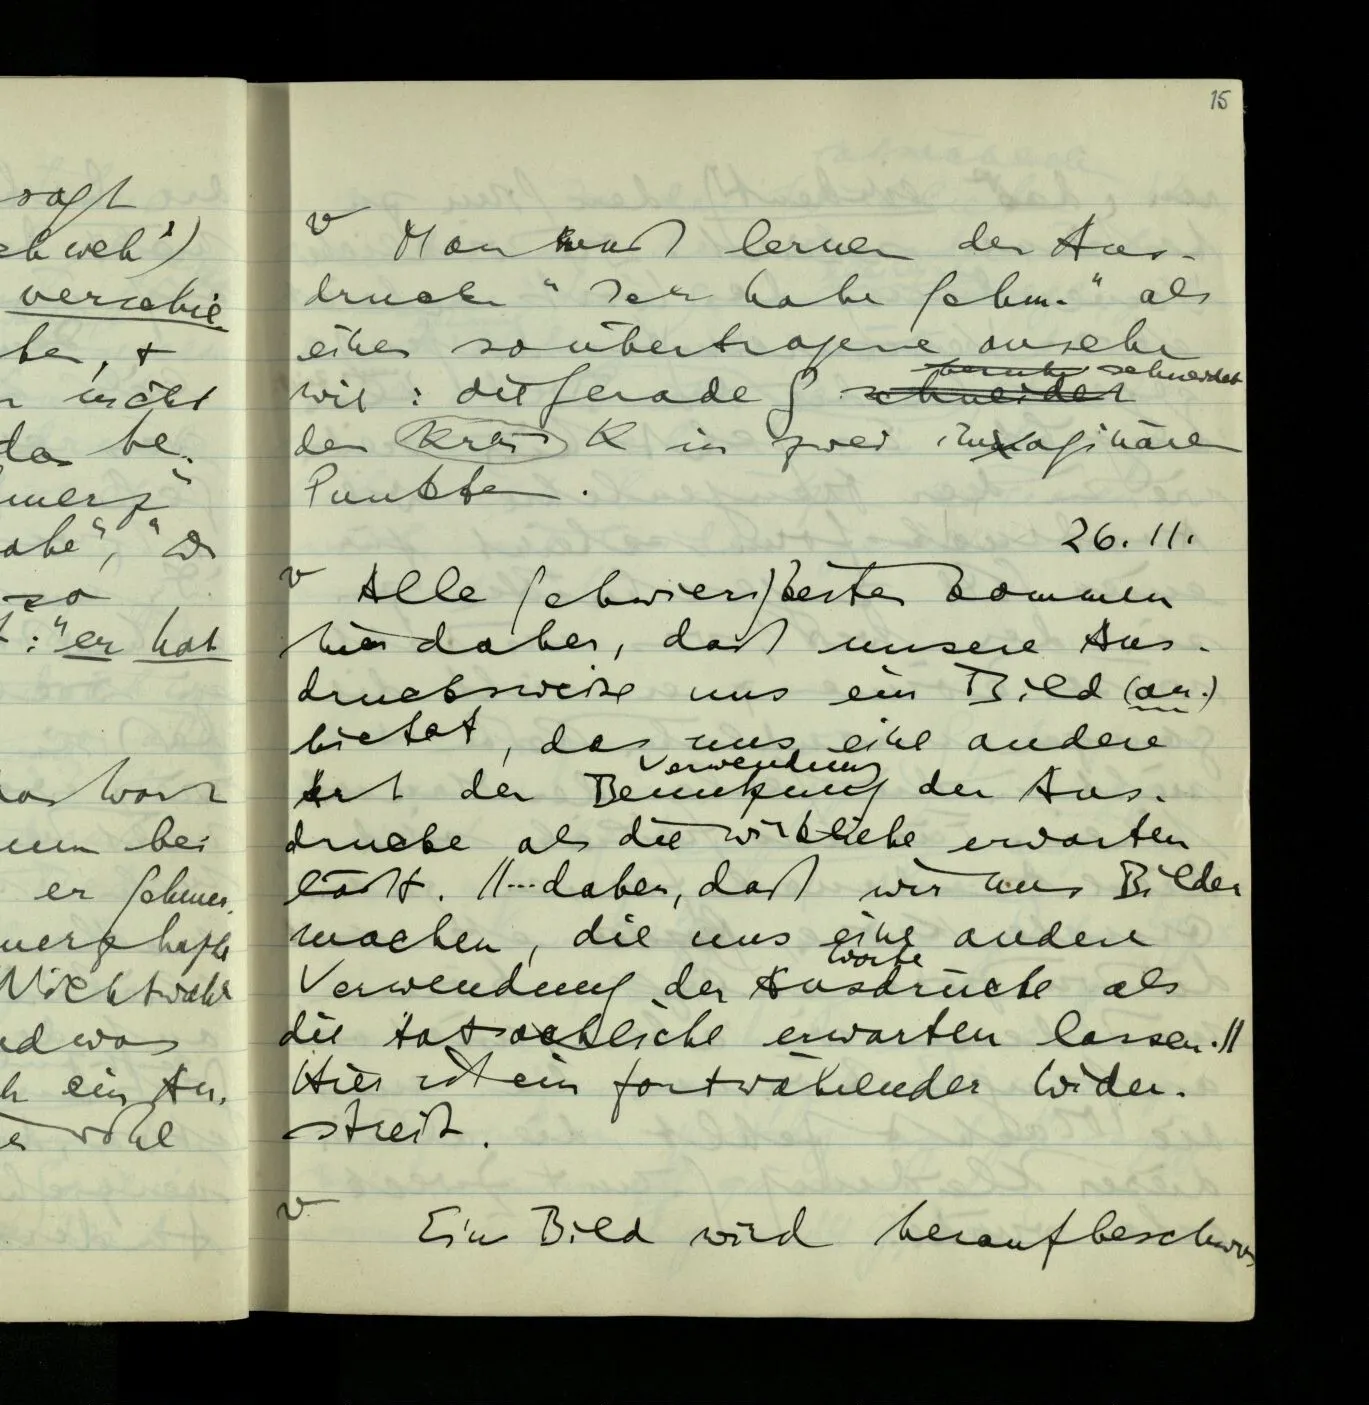 sagt
ch weh")
verschie-
be, +
n nicht
das be-
merz"
abe", "Du
so
t: "er hat
as Wort
nun bei
er Schmer-
merzhafte
Nichtwahr
nd was
h ein An-
er wohl
15
v Man muß lernen den Aus-
druck "Ich habe Schm." als
einen so übertragene ansehen
wie: die Gerade g schneidet schneidet
den Kreis K in zwei imaginären
Punkten.
26. 11.
v Alle Schwierigkeiten kommen
hier daher, daß unsere Aus-
drucksweise uns ein Bild (an-)
bietet, das uns eine andere
Verwendung
Art der Benutzung der Aus-
drücke als die wirkliche erwarten
läßt. //...daher, daß wir uns Bilder
machen, die uns eine andere
Worte
Verwendung der Ausdrücke als
die tatsächliche erwarten lassen.//
Hier ist ein fortwährender Wider-
streit.
v Ein Bild wird heraufbeschwo